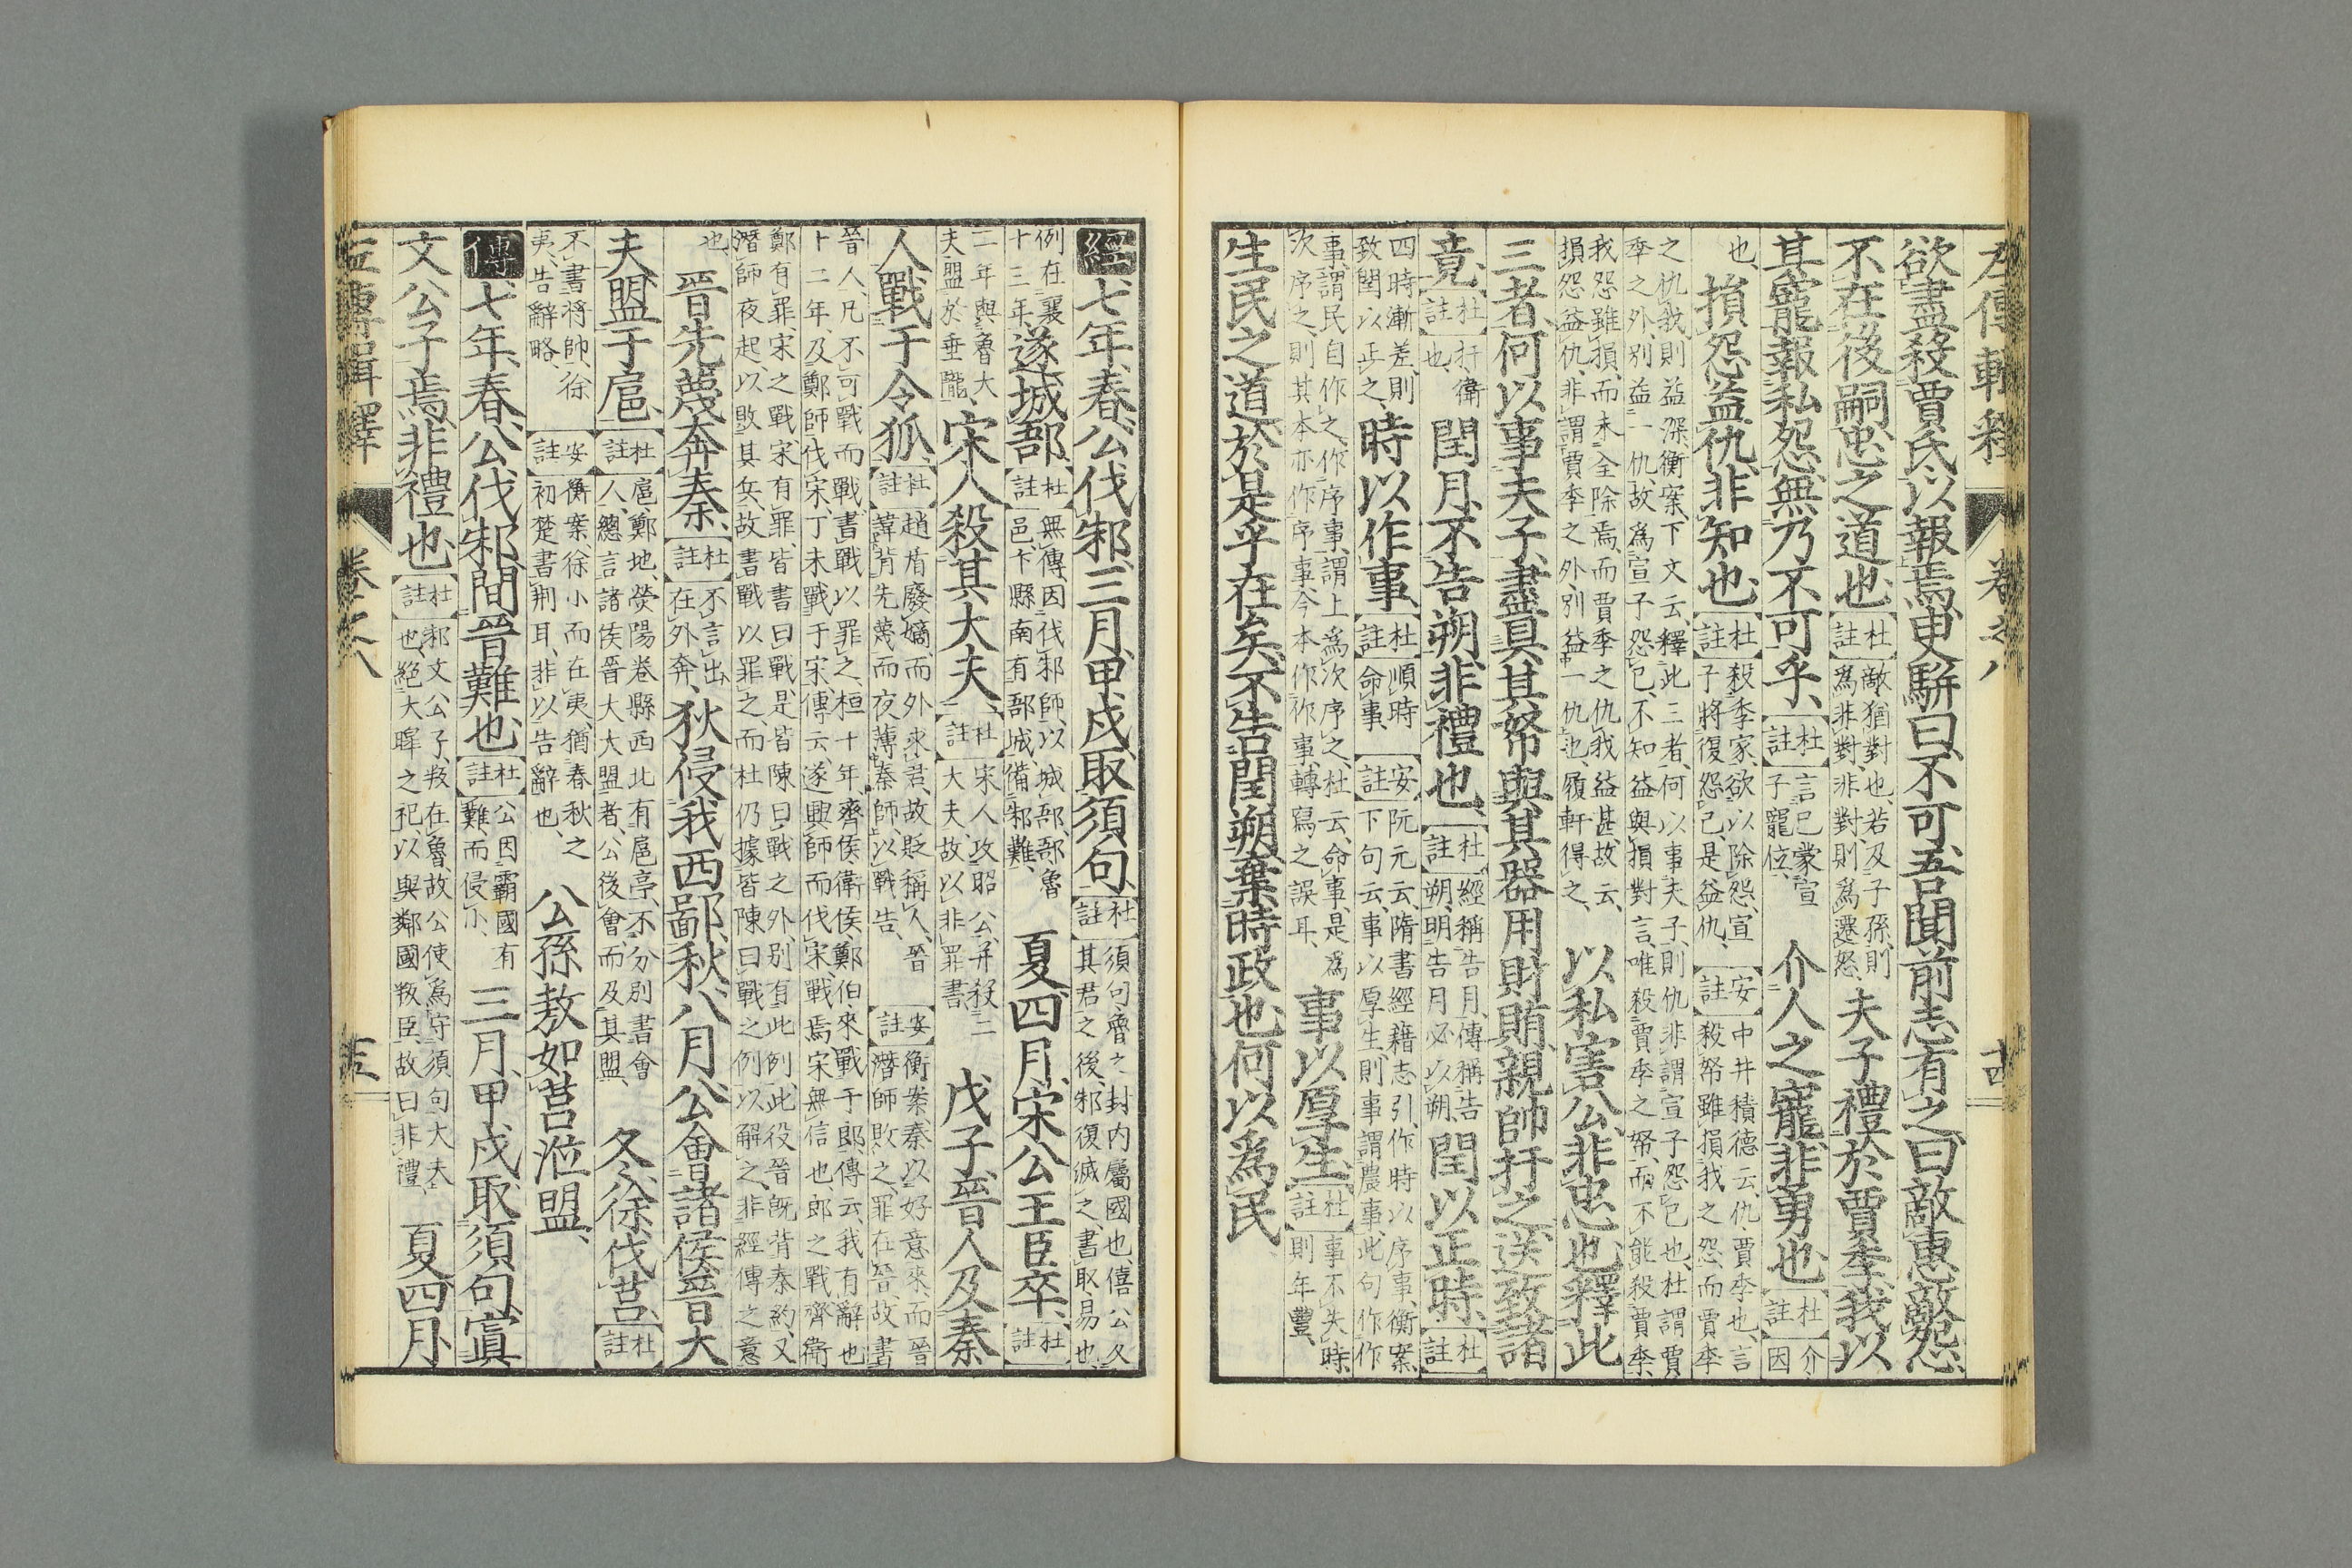 左傳輯釋 卷之八 十四
欲盡殺賈氏、以報焉、臾駢曰、不可、吾聞前志有之、曰敵惠敵怨、
不在後嗣、忠之道也、杜註敵、猶對也、若及子孫、則
爲非對、非對、則爲遷怒、夫子禮於賈季、我以
其寵報私怨、無乃不可乎、杜註言己蒙宣
子寵位、介人之寵、非勇也、杜註介、
因
也、損怨益仇、非知也、杜註殺季家、欲以除怨、宣
子將復怨己、是益仇、安註中井積德云、仇賈季也、言
殺帑雖損我之怨、而賈季
之仇我則益深、衡案、下文云、釋此三者、何以事夫子、則仇非謂宣子怨己也、杜謂賈
季之外、別益一仇、故爲宣子怨己、不知益與損對言、唯殺賈季之帑、而不能殺賈季、
我怨雖損、而未全除焉、而賈季之仇我益甚、故云、
損怨益仇、非謂賈季之外、別益一仇也、履軒得之、以私害公、非忠也、釋此
三者、何以事夫子、盡具其帑與其器用財賄、親帥扞之、送致諸
竟、杜註扞衛
也、閏月不告朔、非禮也、杜註經稱告月、傳稱告
朔、明告月必以朔、閏以正時、杜註
四時漸差、則
致閏以正之、時以作事、杜註順時
命事、安註阮元云、隋書經藉志引作時以序事、衡案、
下句云、事以厚生、則事謂農事、此句作作
事、謂民自作之、作序事、謂上爲次序之、杜云、命事、是爲
次序之、則其本亦作序事、今本作作事、轉寫之誤耳、事以厚生、杜註事不失時、
則年豐、
生民之道、於是乎在矣、不告閏朔、棄時政也、何以為民
經七年、春、公伐邾、三月、甲戌、取須句、杜註須句、魯之封内屬國也、僖公
其君之後、邾復滅之、書取、易也、
例在襄
十三年、遂城郚、杜註無傳、因伐邾師、以城郚、郚、魯
邑、卞縣南有郚城、備邾難、夏四月、宋公王臣卒、杜註
二年與魯大
夫盟於垂隴、宋人殺其大夫、杜註宋人攻昭公、并殺二
大夫、故以非罪書、戊子、晉人及秦
人戰于令狐、杜註趙盾廢嫡、而外求君、故貶稱人、晉
諱背先蔑、而夜薄秦師、以戰告、安註衡案、秦以好意來、而晉
潛師敗之、罪在晉、故書
晉人、凡不可戰而戰、書戰以罪之、桓十年、齊侯衛侯、鄭伯、來戰于郎、傳云、我有辭也、
十二年、及鄭師伐宋、丁未、戰于宋、傳云、遂興師而伐宋、戰焉、宋無信也、郎之戰、齊衛
鄭有罪、宋之戰、宋有罪、皆書曰戰、是皆陳曰戰之外、別有此例、此役晉既背秦約、又
潛師夜起、以敗其兵、故書戰以罪之、而杜仍據皆陳曰戰之例以解之、非經傳之意
也、晉先蔑奔秦、杜註不言出、
在外奔、狄侵我西鄙、秋、八月、公會諸侯晉大
夫、盟于扈、杜註扈、鄭地、滎陽卷縣西北有扈亭、不分別書會
人、總言諸侯晉大夫盟者、公後會、而及其盟、冬、徐伐莒、杜註
不書將帥、徐
夷、告辭略、安註衡案、徐小而在夷、猶春秋之
初楚書荊耳、非以告辭也、公孫敖如莒涖盟、
傳七年、春、公伐邾、間晉難也、杜註公因霸國有
難、而侵小、三月、甲戌、取須句、寘
文公子焉、非禮也、杜註邾文公子、叛在魯、故公使爲守須句大夫
也、絕大皞之祀、以與鄰國叛臣、故曰非禮、夏四月、
左傳輯釋 卷之八 十五